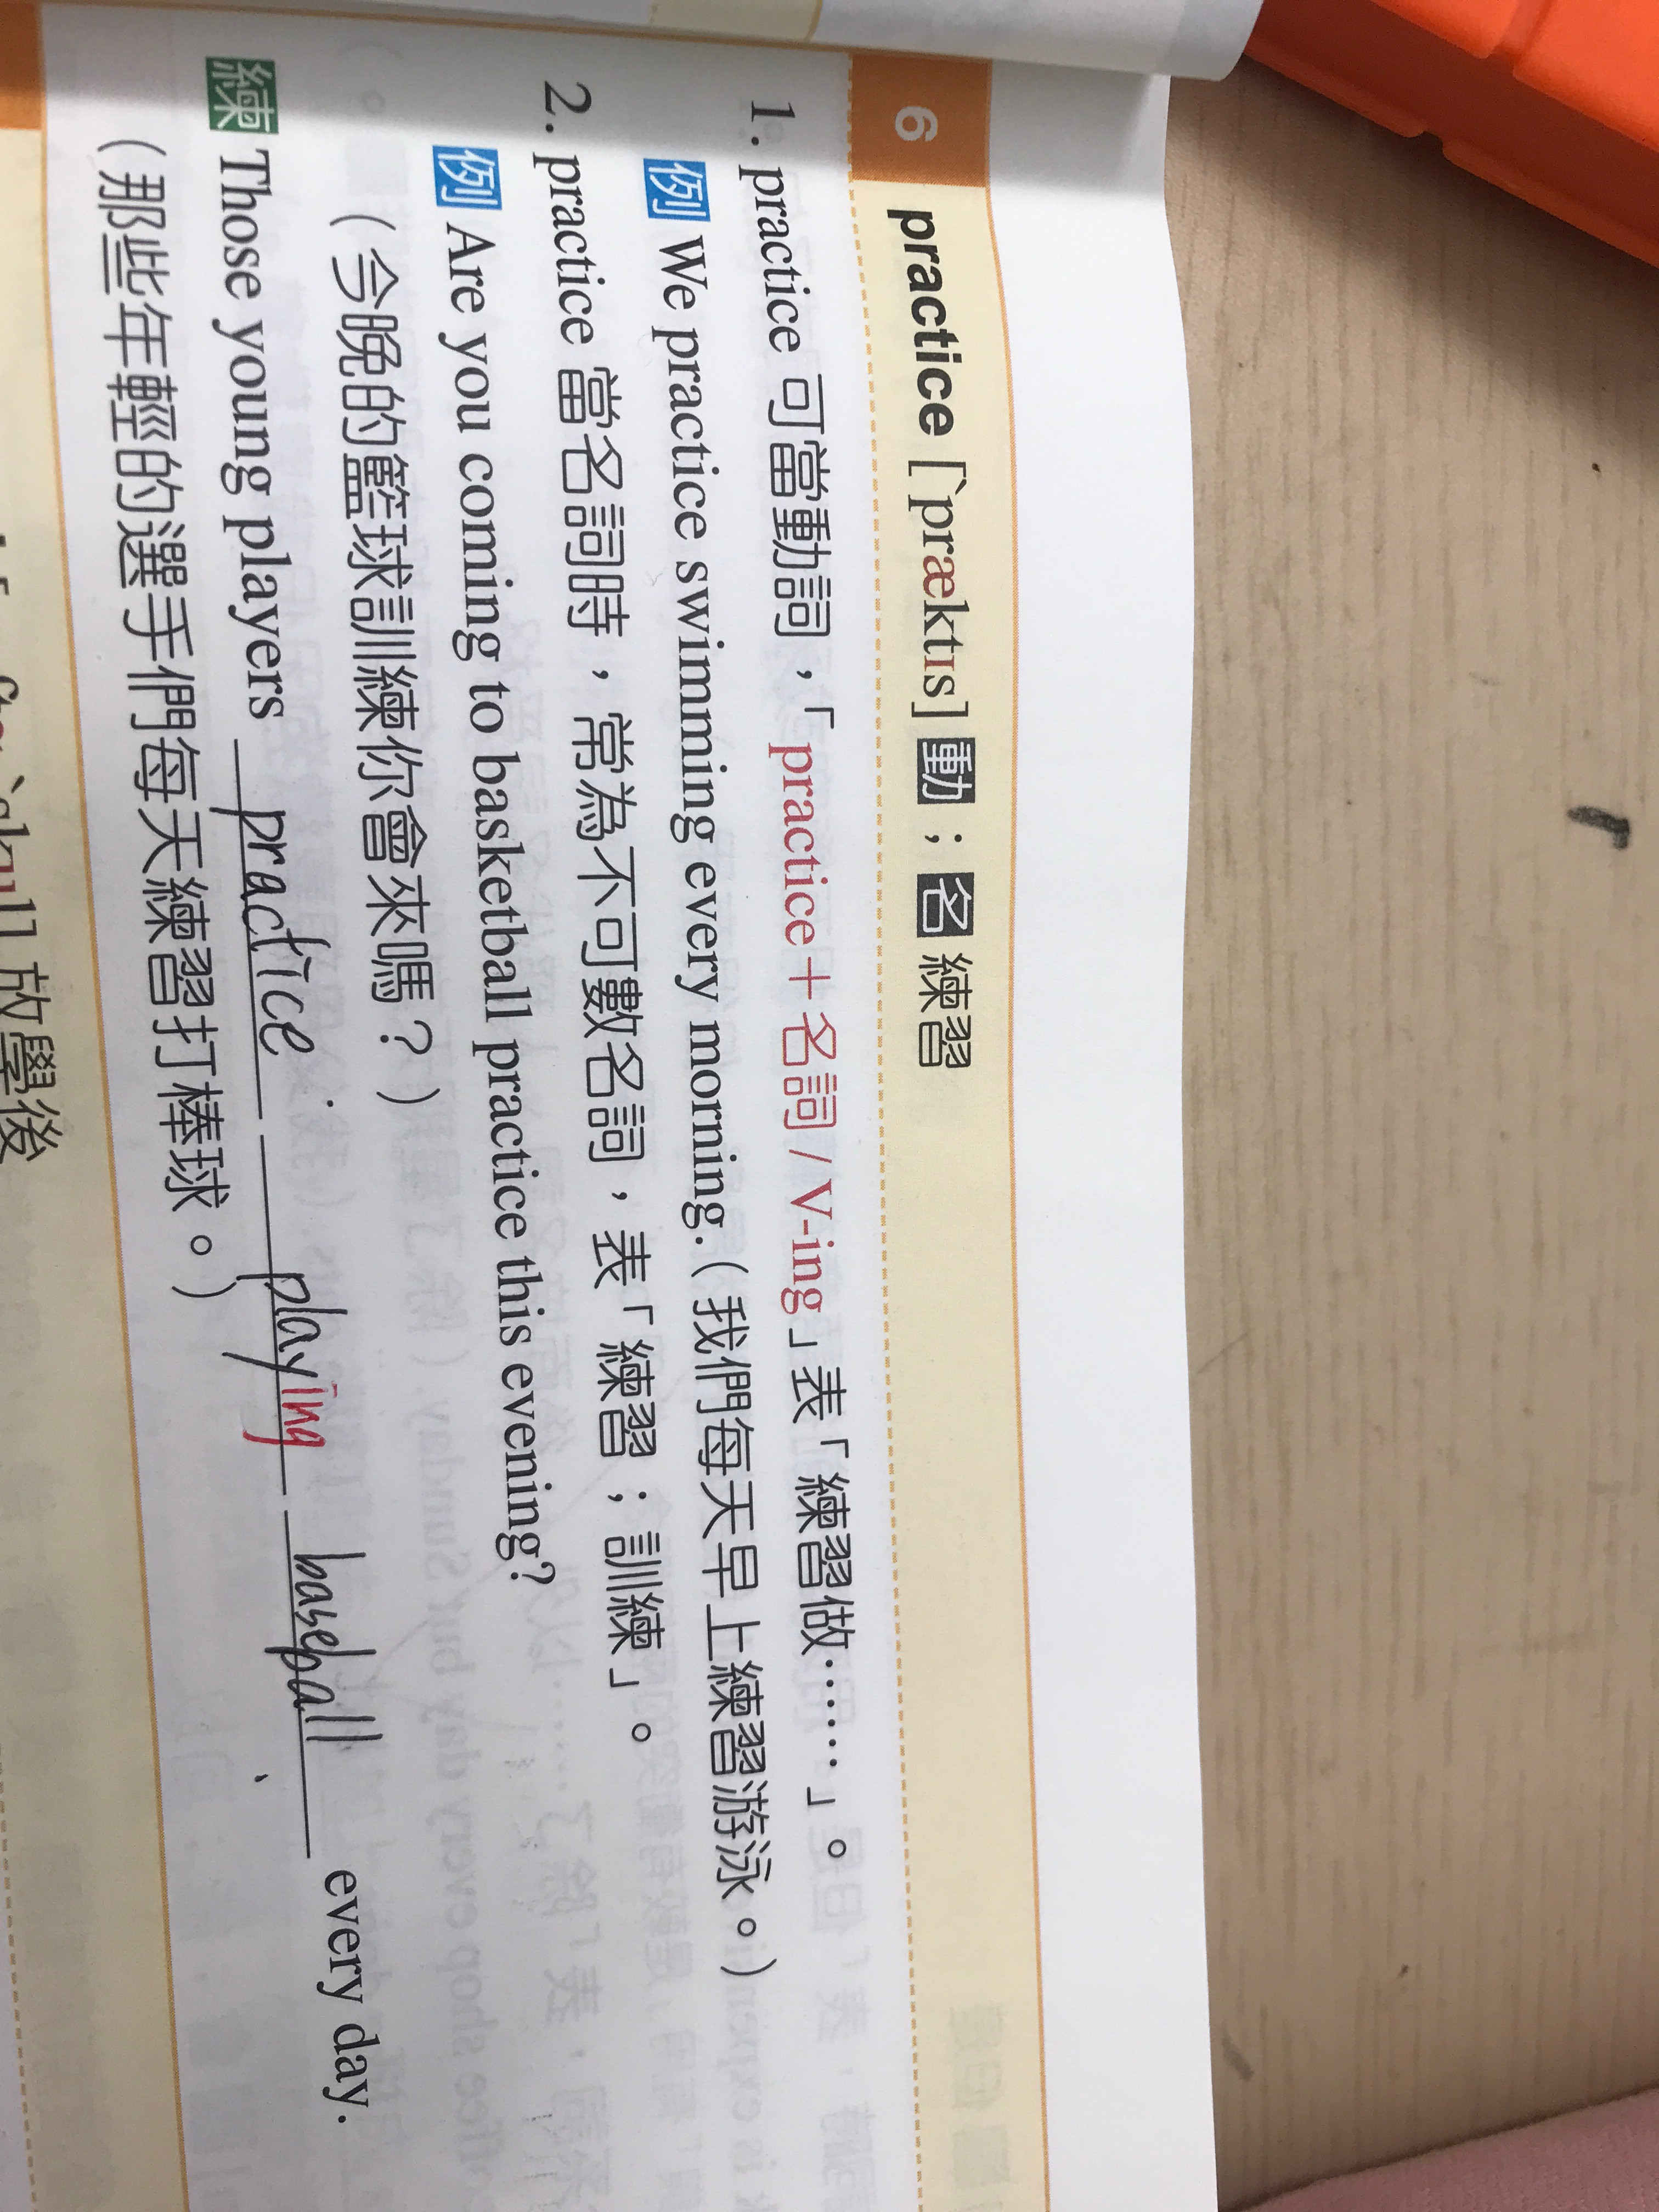 6 practice [ˋpræktɪs] 動；名 練習
1. practice 可當動詞，「practice＋名詞 / V-ing」表「練習做……」。
例 We practice swimming every morning. (我們每天早上練習游泳。)
2. practice 當名詞時，常為不可數名詞，表「練習；訓練」。
例 Are you coming to basketball practice this evening?
(今晚的籃球訓練你會來嗎？)
練 Those young players practice playing baseball every day.
(那些年輕的選手們每天練習打棒球。)
放學後